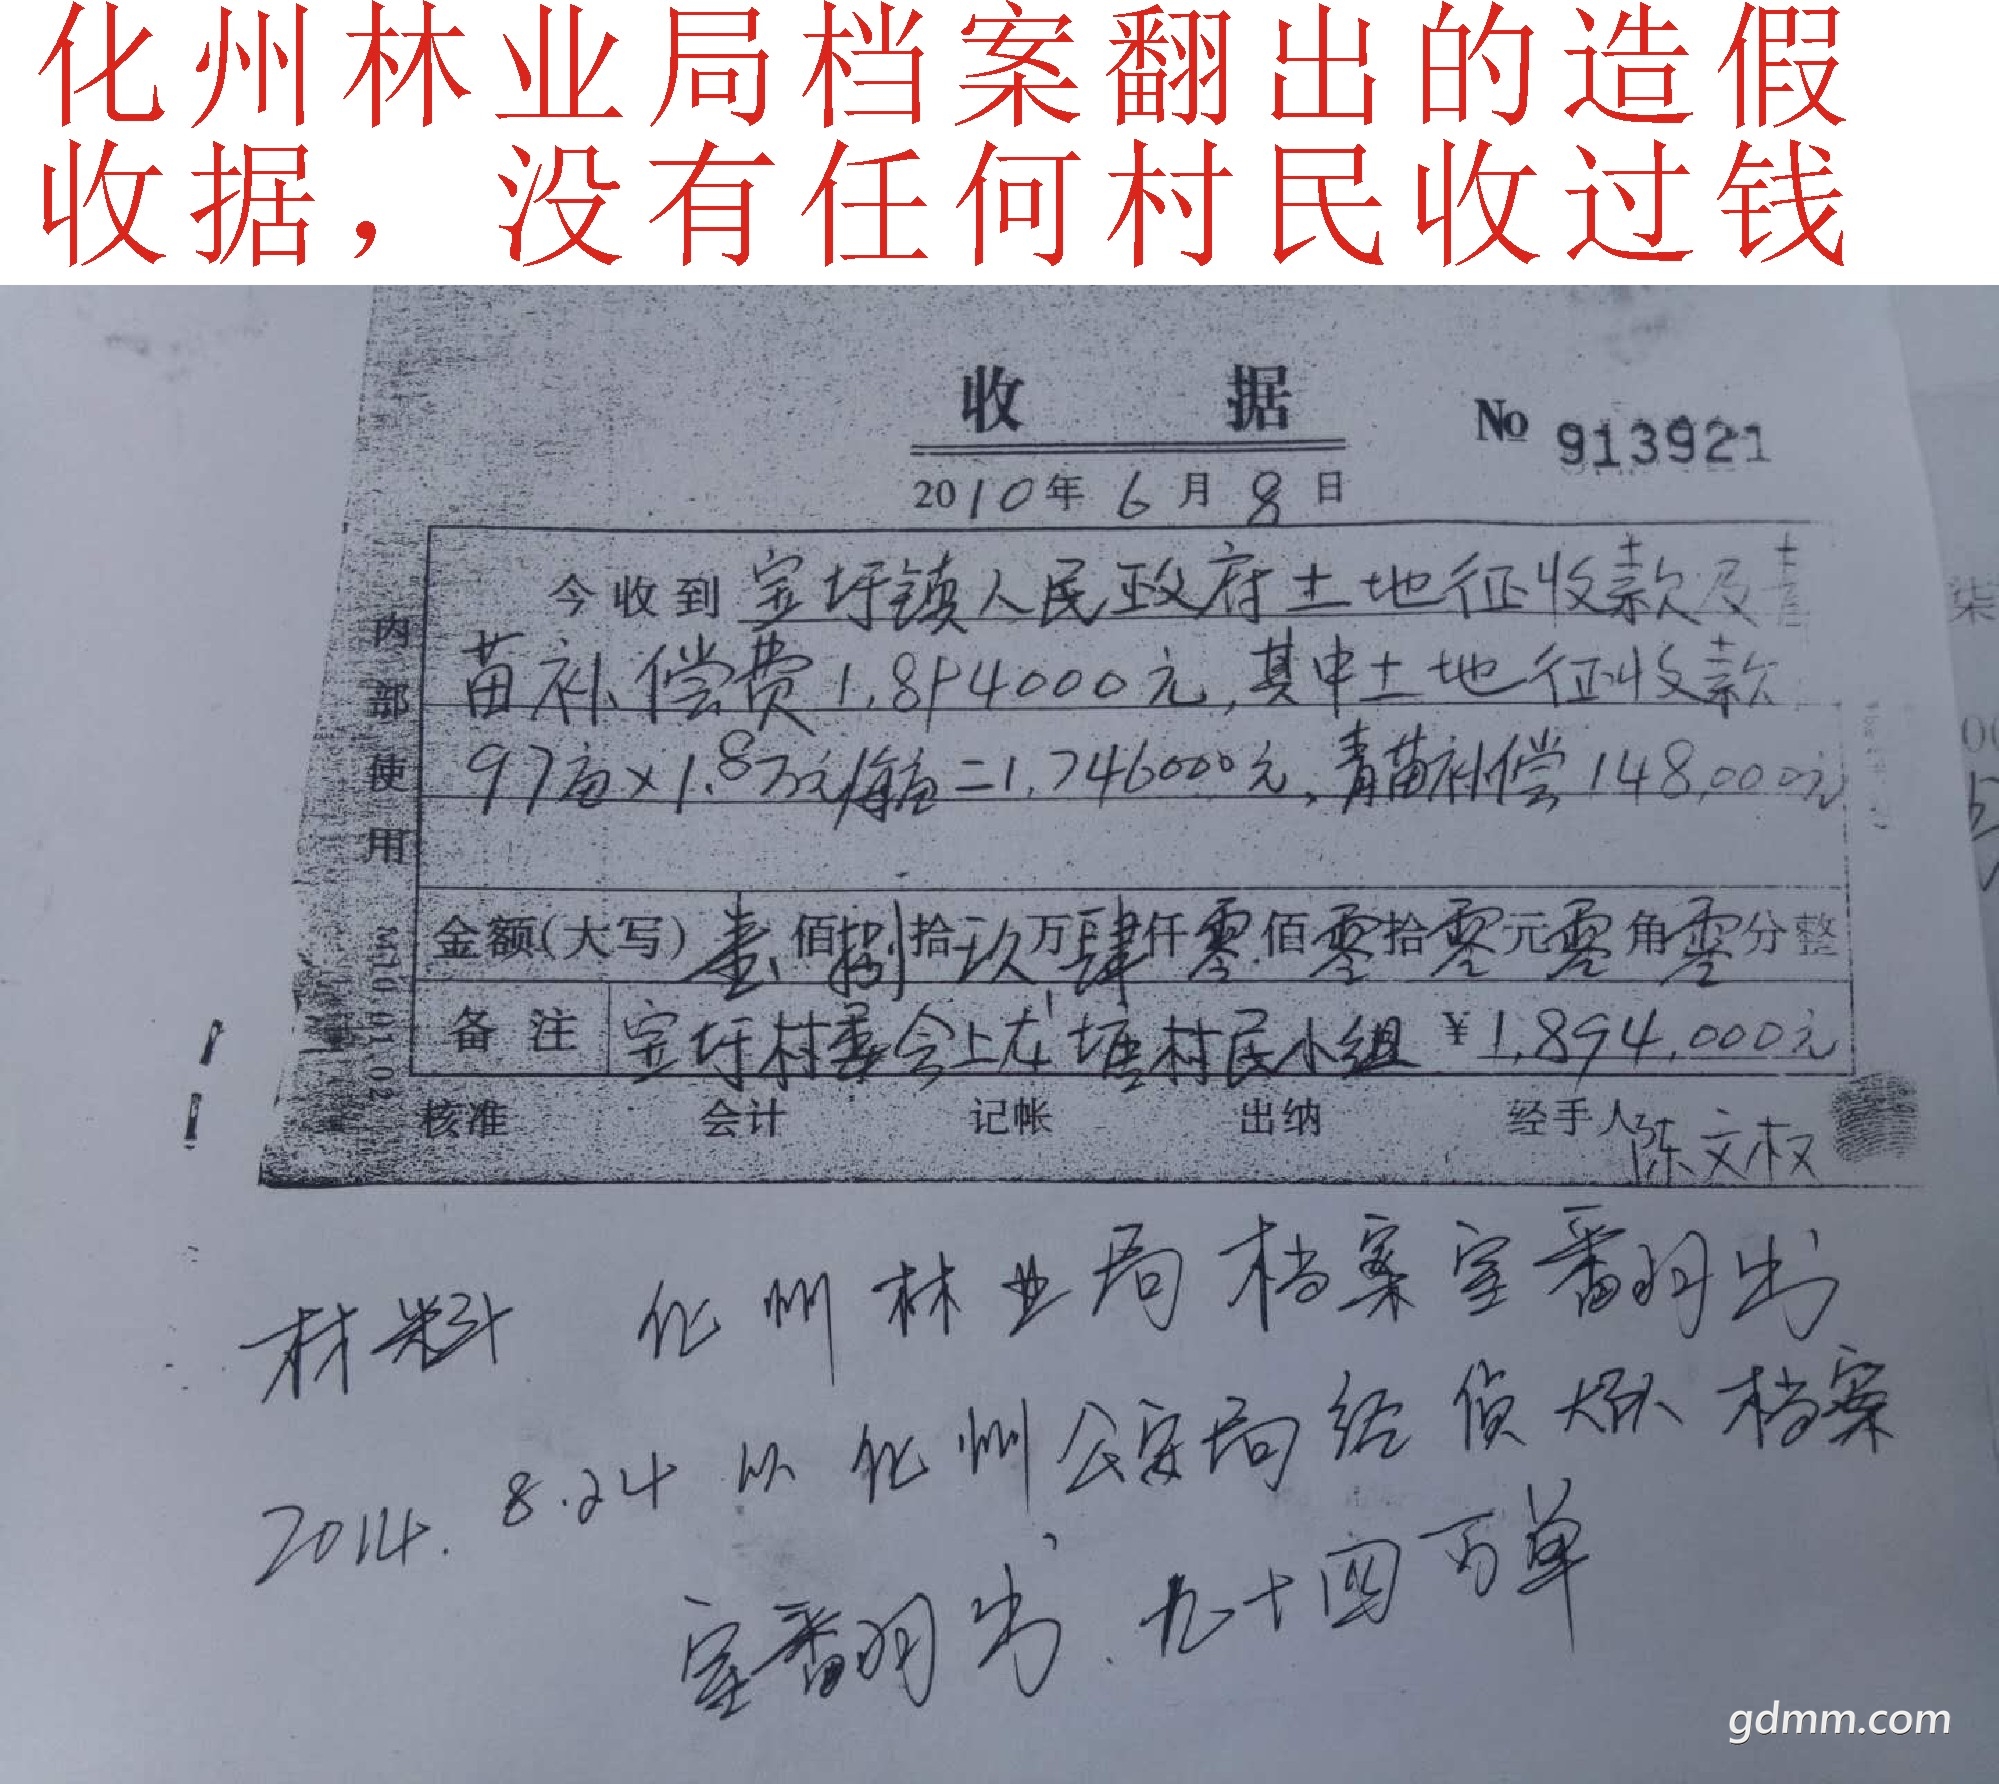 化州林业局档案翻出的造假
收据，没有任何村民收过钱
收 据
No 913921
2010年 6月 8日
内部使用
今收到 宝圩镇人民政府土地征收款及青
苗补偿费1,894000元,其中土地征收款
97亩×1.8万元/每亩=1,746000元,青苗补偿148,000元
金额(大写) 壹佰捌拾玖万肆仟零佰零拾零元零角零分整
备注 宝圩村委会上龙塘村民小组 ¥1,894,000元
核准 会计 记帐 出纳 经手人 陈文权
材料 化州林业局档案室翻出
2014.8.24 从化州公安局经侦大队档案
室翻出、九十四万单
gdmm.com